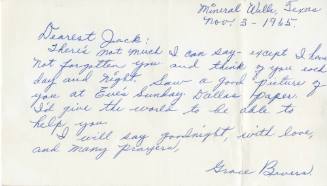 Mineral Wells, Texas
Nov. 3 - 1965
Dearest Jack:
There's not much I can say - except I have
not forgotten you and think of you each
day and night. Saw a good picture of
you at Eve's Sunday, Dallas paper.
I'd give the world to be able to
help you.
I will say goodnight, with love,
and many prayers,
Grace